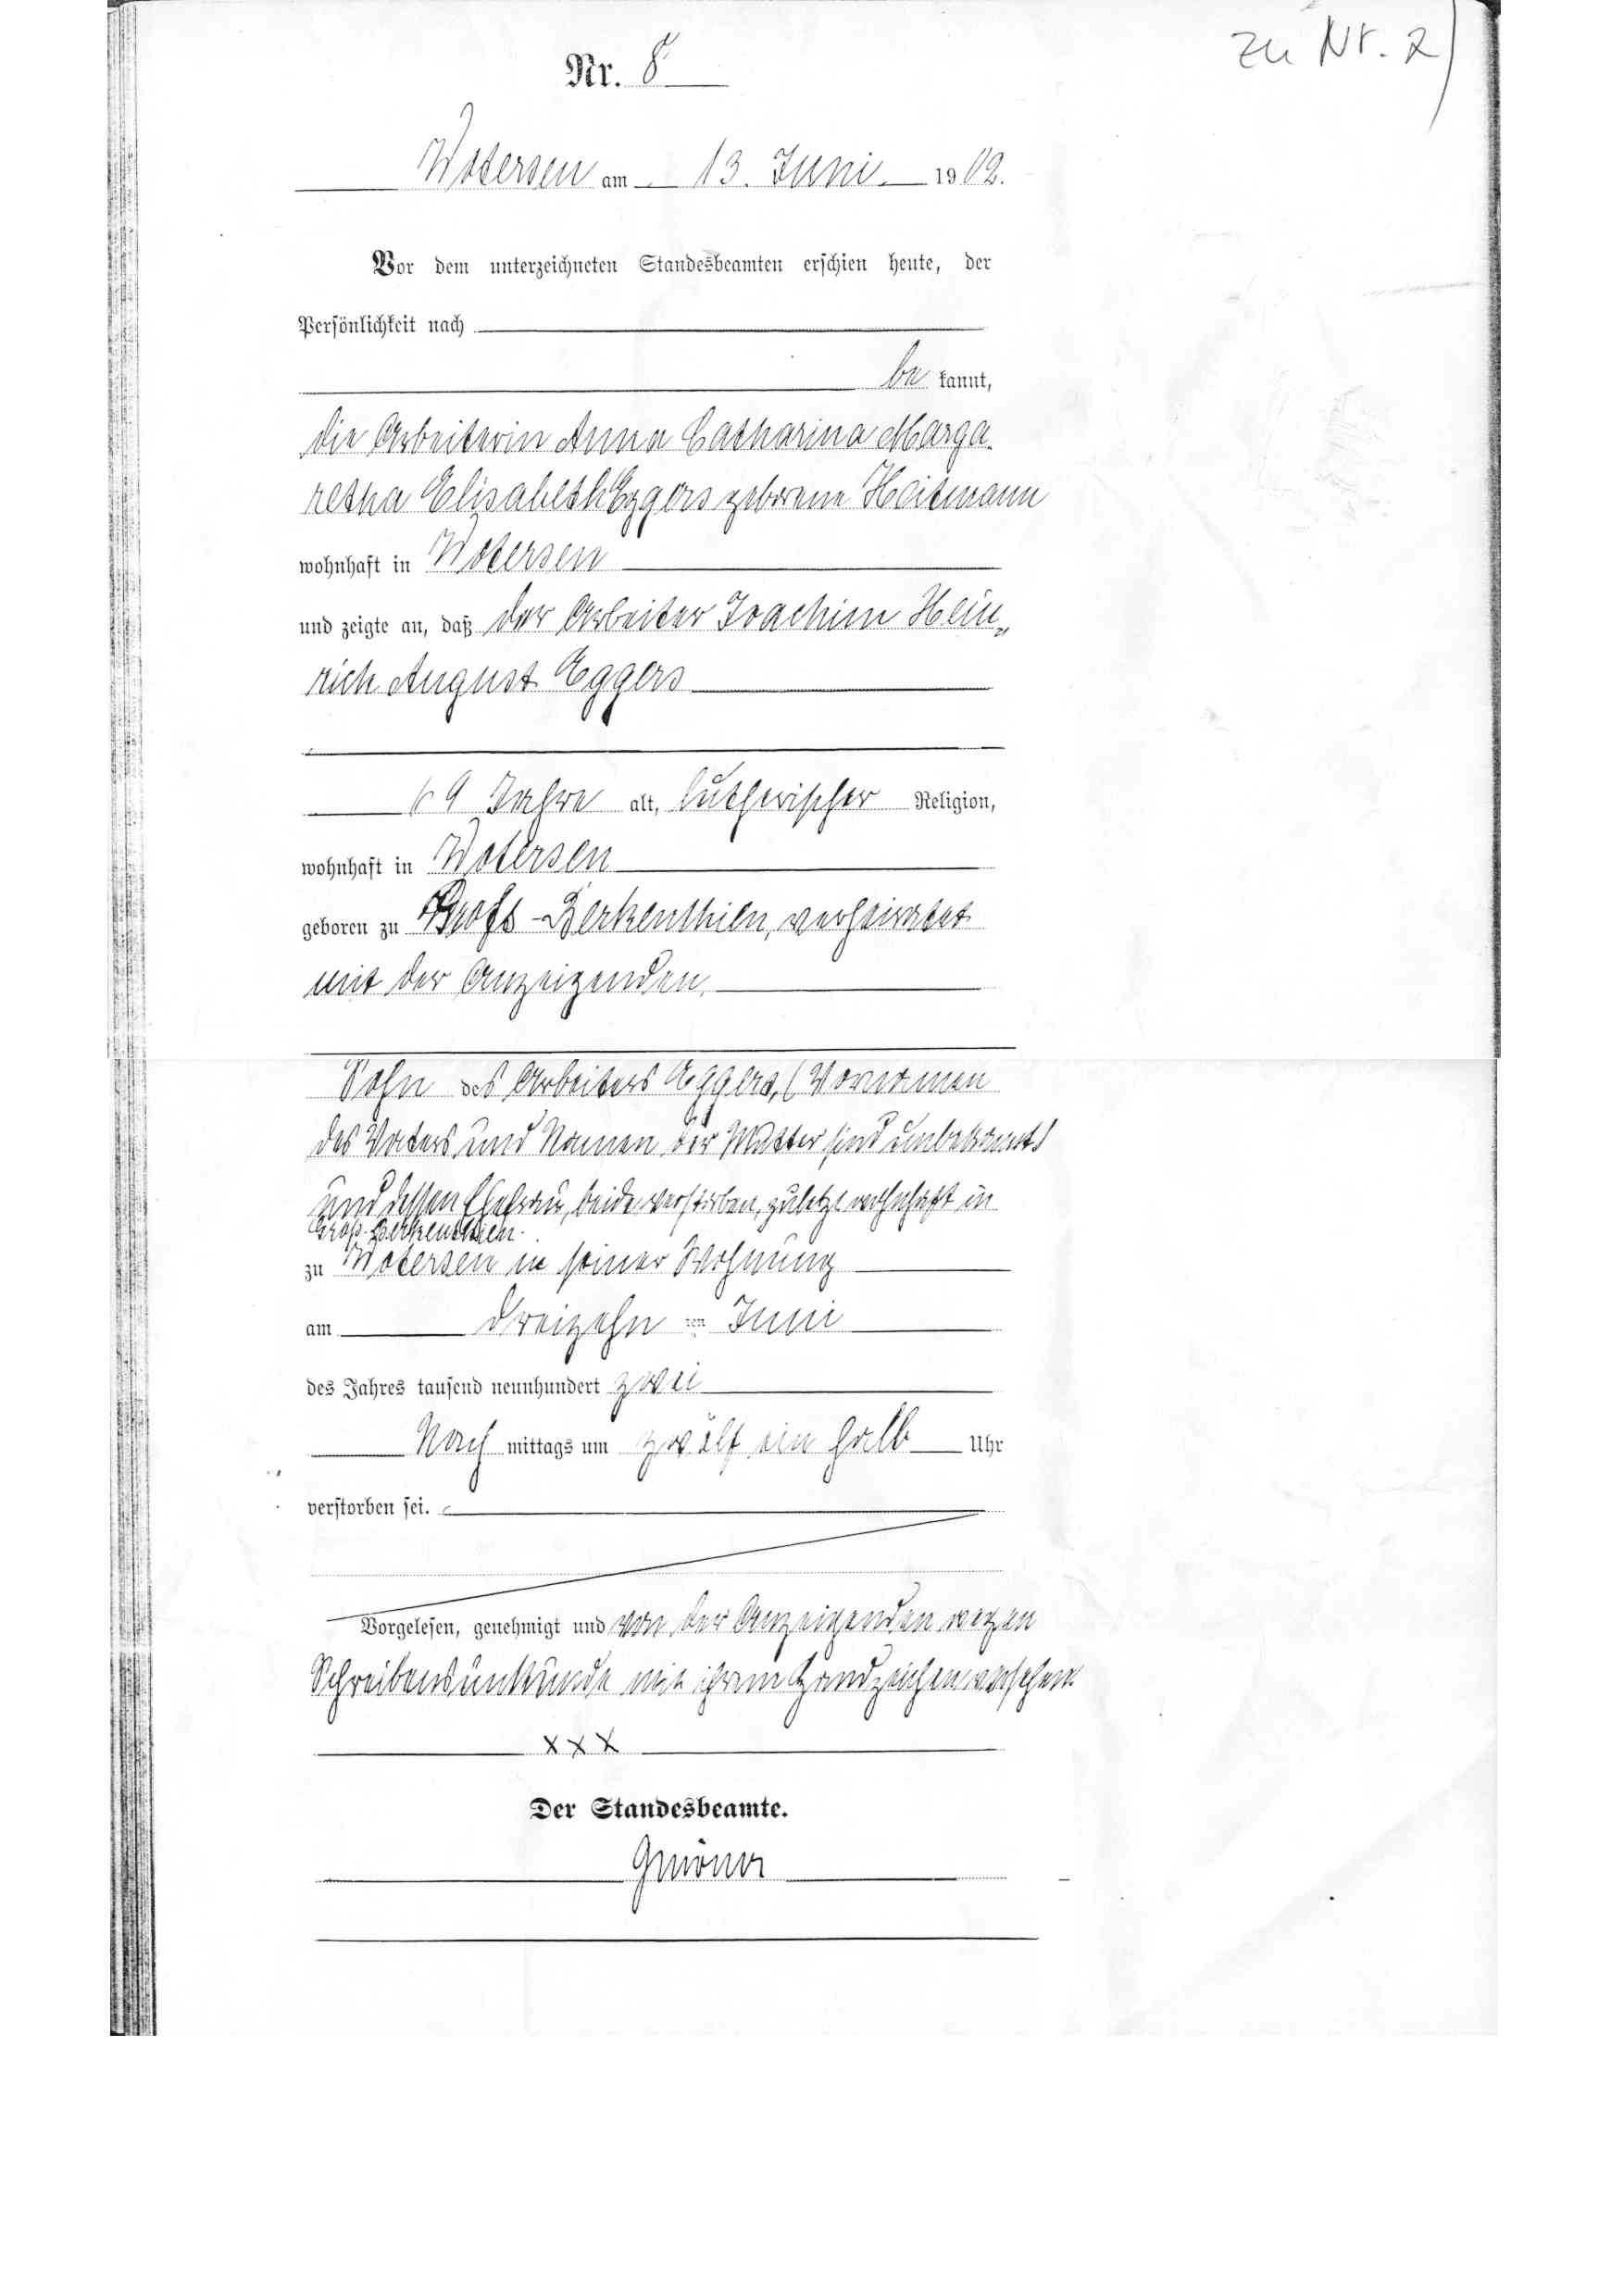 zu Nr. 2)
Nr. 8
Wotersen am 13. Juni 1902.
Vor dem unterzeichneten Standesbeamten erschien heute, der
Persönlichkeit nach
be kannt,
die Arbeiterin Anna Catharina Marga-
retha Elisabeth Eggers geborene Heitmann
wohnhaft in Wotersen
und zeigte an, daß der Arbeiter Joachim Hein-
rich August Eggers
69 Jahre alt, lutherischer Religion,
wohnhaft in Wotersen
geboren zu Groß-Berkenthien, verheiratet
mit der Anzeigenden.
Sohn des Arbeiters Eggers, (Vornamen
des Vaters und Namen der Mutter sind unbekannt)
und dessen Ehefrau, beide verstorben, zuletzt wohnhaft in
Groß-Berkenthien.
zu Wotersen in seiner Wohnung
am dreizehn ten Juni
des Jahres tausend neunhundert zwei
Nach mittags um zwölf ein halb Uhr
verstorben sei.
Vorgelesen, genehmigt und von der Anzeigenden wegen
Schreibensunkunde mit ihrem Handzeichen versehen
x x x
Der Standesbeamte.